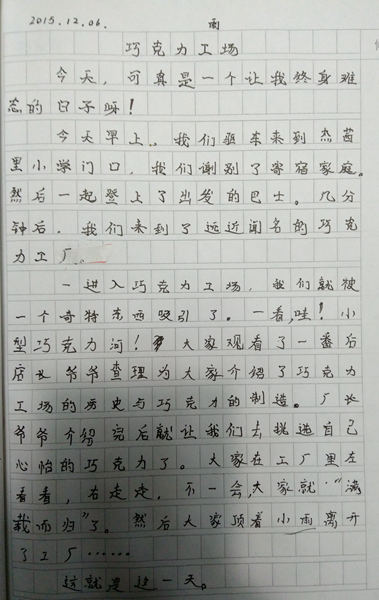 2015.12.06. 雨
巧克力工场
今天，可真是一个让我终身难
忘的日子呀！
今天早上，我们驱车来到杰茜
里小学门口，我们谢别了寄宿家庭。
然后一起登上了出发的巴士。几分
钟后，我们来到了远近闻名的巧克
力工厂。
一进入巧克力工场，我们就被
一个奇特东西吸引了。一看，哇！小
型巧克力河！大家观看了一番后
店长爷爷查理为大家介绍了巧克力
工场的历史与巧克力的制造。厂长
爷爷介绍完后就让我们去挑选自己
心怡的巧克力了。大家在工厂里左
看看，右走走，不一会，大家就“满
载而归”了。然后大家顶着小雨离开
了工厂……
这就是这一天。